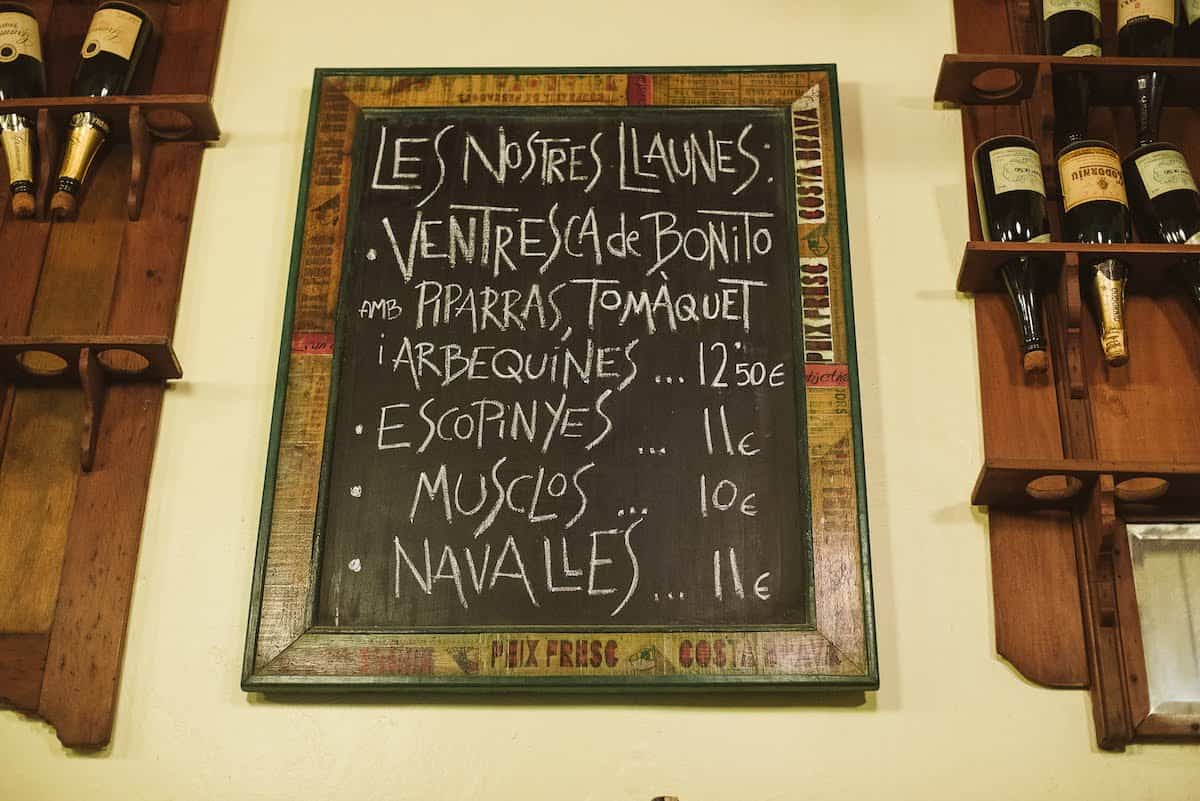 LES NOSTRES LLAUNES:
• VENTRESCA de BONITO
AMB PIPARRAS, TOMÀQUET
i ARBEQUINES ... 12'50€
• ESCOPINYES ... 11€
• MUSCLOS ... 10€
• NAVALLES ... 11€
COSTA BRAVA
PEIX FRESC
PEIX FRESC
COSTA BRAVA
CODORNÍU